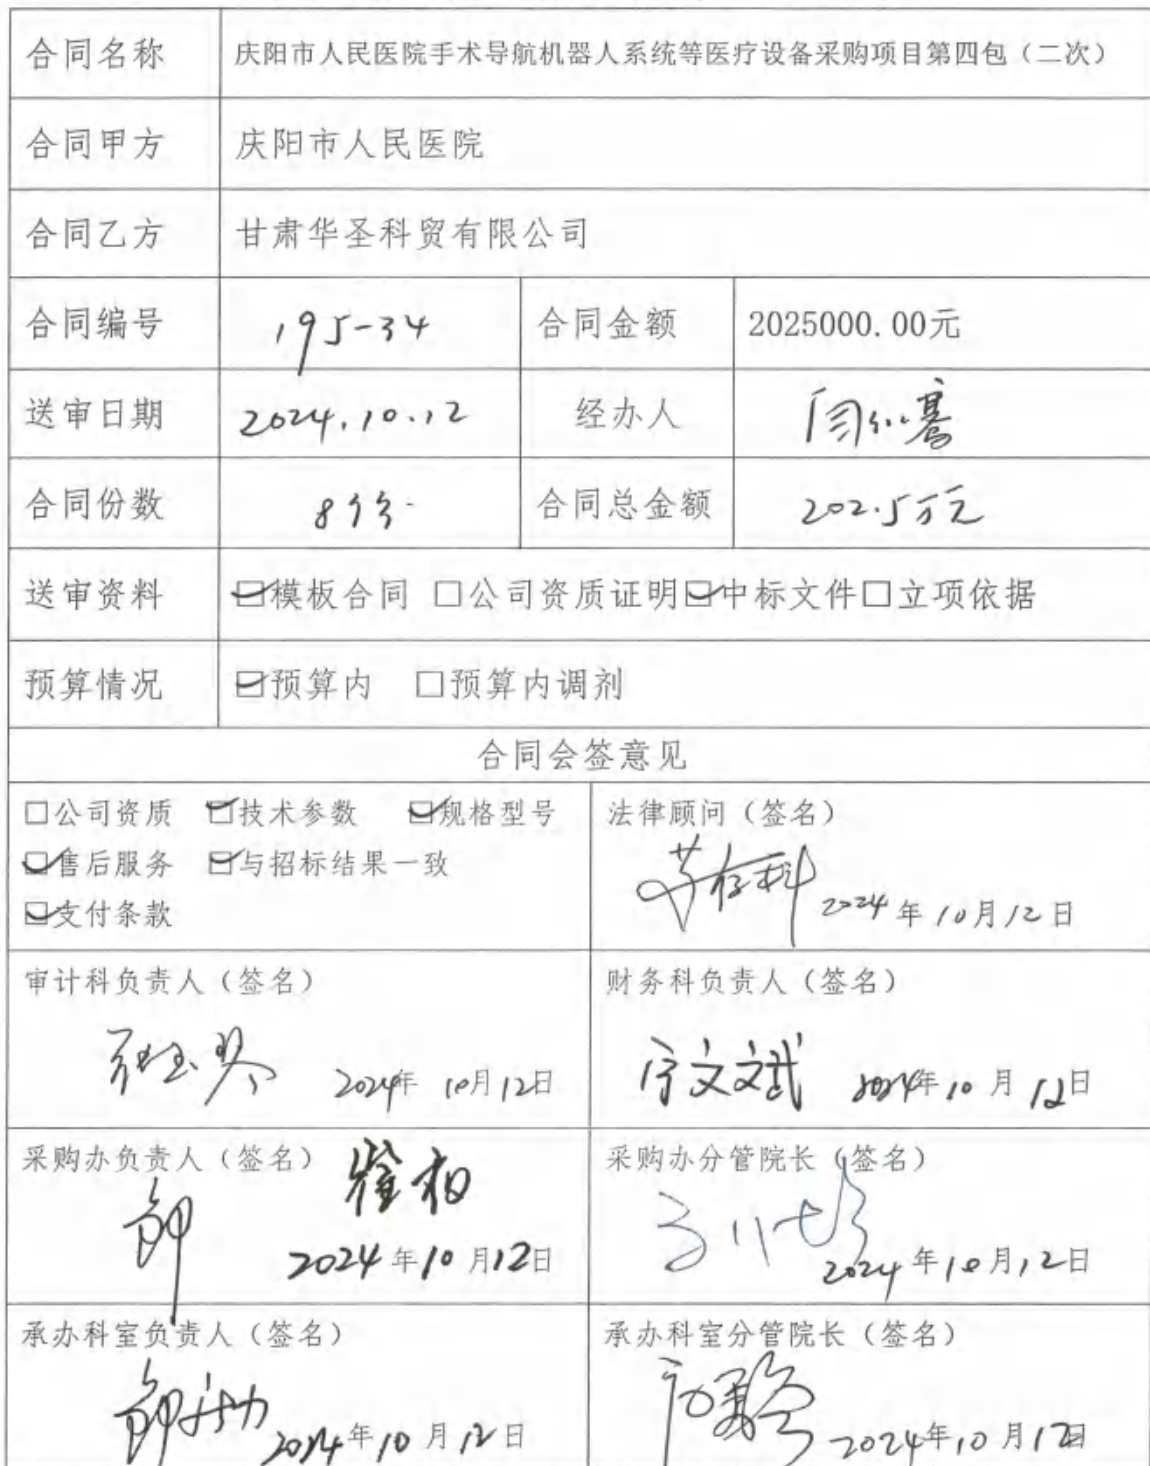 合同名称 庆阳市人民医院手术导航机器人系统等医疗设备采购项目第四包（二次）
合同甲方 庆阳市人民医院
合同乙方 甘肃华圣科贸有限公司
合同编号 195-34 合同金额 2025000.00元
送审日期 2024.10.12 经办人
合同份数 8份 合同总金额 202.5万元
送审资料 ☑模板合同 □公司资质证明☑中标文件□立项依据
预算情况 ☑预算内 □预算内调剂
合同会签意见
□公司资质 ☑技术参数 ☑规格型号
☑售后服务 ☑与招标结果一致
☑支付条款
法律顾问（签名）
2024年10月12日
审计科负责人（签名）
2024年10月12日
财务科负责人（签名）
2024年10月12日
采购办负责人（签名）
2024年10月12日
采购办分管院长（签名）
2024年10月12日
承办科室负责人（签名）
2024年10月12日
承办科室分管院长（签名）
2024年10月12日